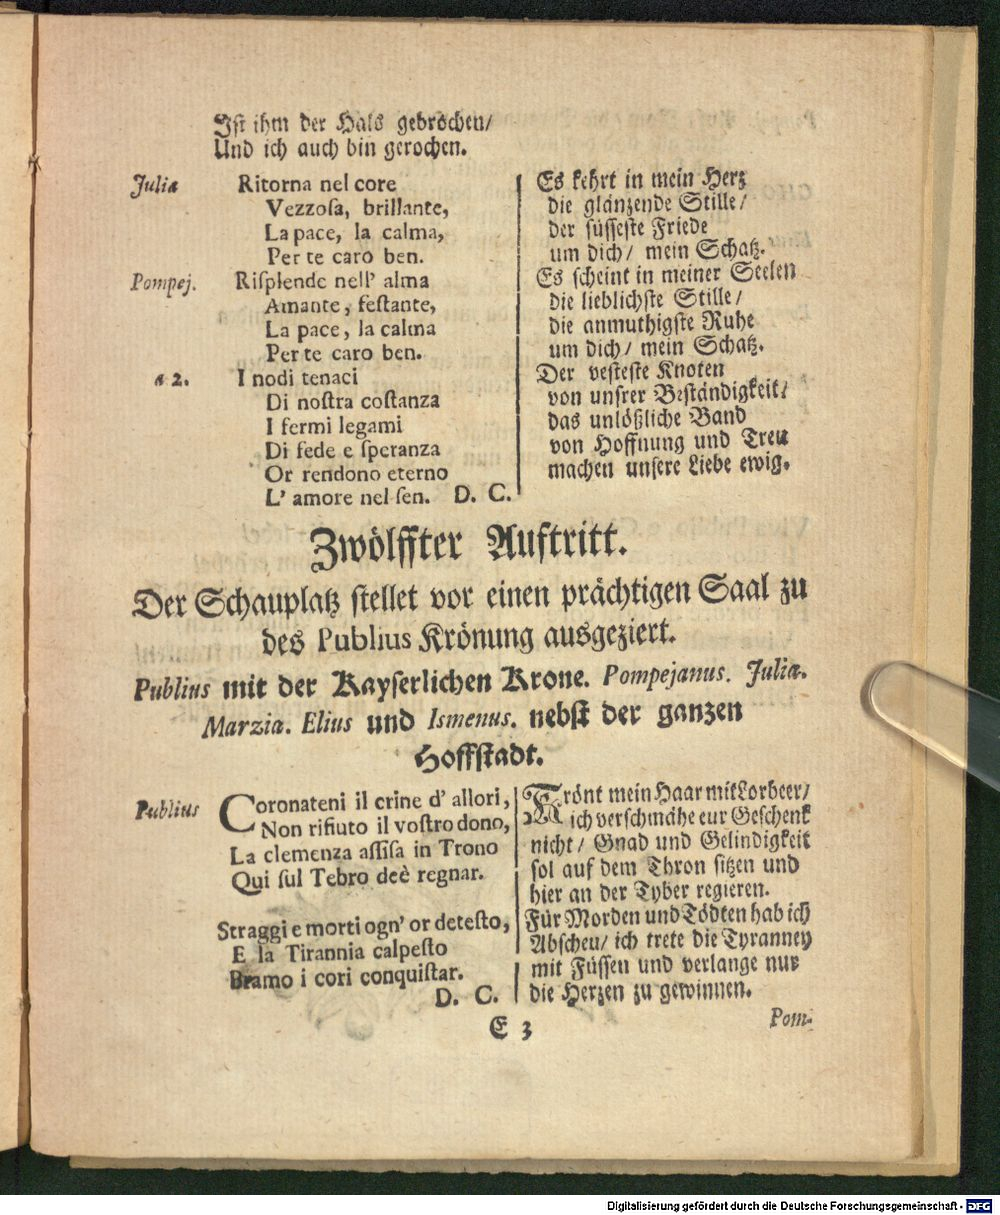 Ist ihm der Hals gebrochen/
Und ich auch bin gerochen.
Julia Ritorna nel core
Vezzoſa, brillante,
La pace, la calma,
Per te caro ben.
Pompej. Riſplende nell' alma
Amante, feſtante,
La pace, la calma
Per te caro ben.
a 2. I nodi tenaci
Di noſtra coſtanza
I fermi legami
Di fede e ſperanza
Or rendono eterno
L' amore nel ſen. D. C.
Es kehrt in mein Herz
die glänzende Stille/
der süsseste Friede
um dich/ mein Schatz.
Es scheint in meiner Seelen
die lieblichste Stille/
die anmuthigste Ruhe
um dich/ mein Schatz.
Der vesteste Knoten
von unsrer Beständigkeit/
das unlößliche Band
von Hoffnung und Treu
machen unsere Liebe ewig.
Zwölffter Auftritt.
Der Schauplatz stellet vor einen prächtigen Saal zu
des Publius Krönung ausgeziert.
Publius mit der Kayserlichen Krone. Pompejanus. Julia.
Marzia. Elius und Ismenus. nebst der ganzen
Hoffstadt.
Publius Coronateni il crine d' allori,
Non rifiuto il voſtro dono,
La clemenza aſſiſa in Trono
Qui ſul Tebro deè regnar.
Straggi e morti ogn' or deteſto,
E la Tirannia calpeſto
Bramo i cori conquiſtar.
D. C.
Krönt mein Haar mit Lorbeer/
ich verschmähe eur Geschenk
nicht/ Gnad und Gelindigkeit
sol auf dem Thron sitzen und
hier an der Tyber regieren.
Für Morden und Tödten hab ich
Abscheu/ ich trete die Tyranney
mit Füssen und verlange nur
die Herzen zu gewinnen.
E 3
Pom-
Digitalisierung gefördert durch die Deutsche Forschungsgemeinschaft - DFG